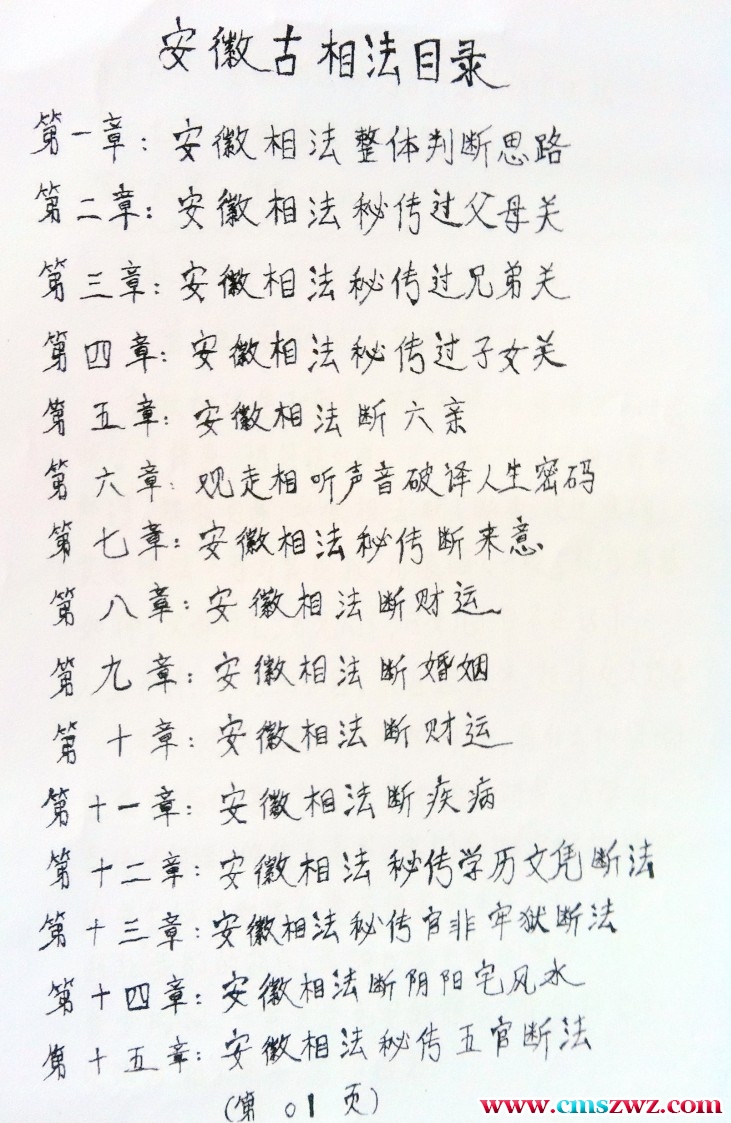 安徽古相法目录
第一章：安徽相法整体判断思路
第二章：安徽相法秘传过父母关
第三章：安徽相法秘传过兄弟关
第四章：安徽相法秘传过子女关
第五章：安徽相法断六亲
第六章：观走相听声音破译人生密码
第七章：安徽相法秘传断来意
第八章：安徽相法断财运
第九章：安徽相法断婚姻
第十章：安徽相法断财运
第十一章：安徽相法断疾病
第十二章：安徽相法秘传学历文凭断法
第十三章：安徽相法秘传官非牢狱断法
第十四章：安徽相法断阴阳宅风水
第十五章：安徽相法秘传五官断法
（第01页）
www.cmszwz.com